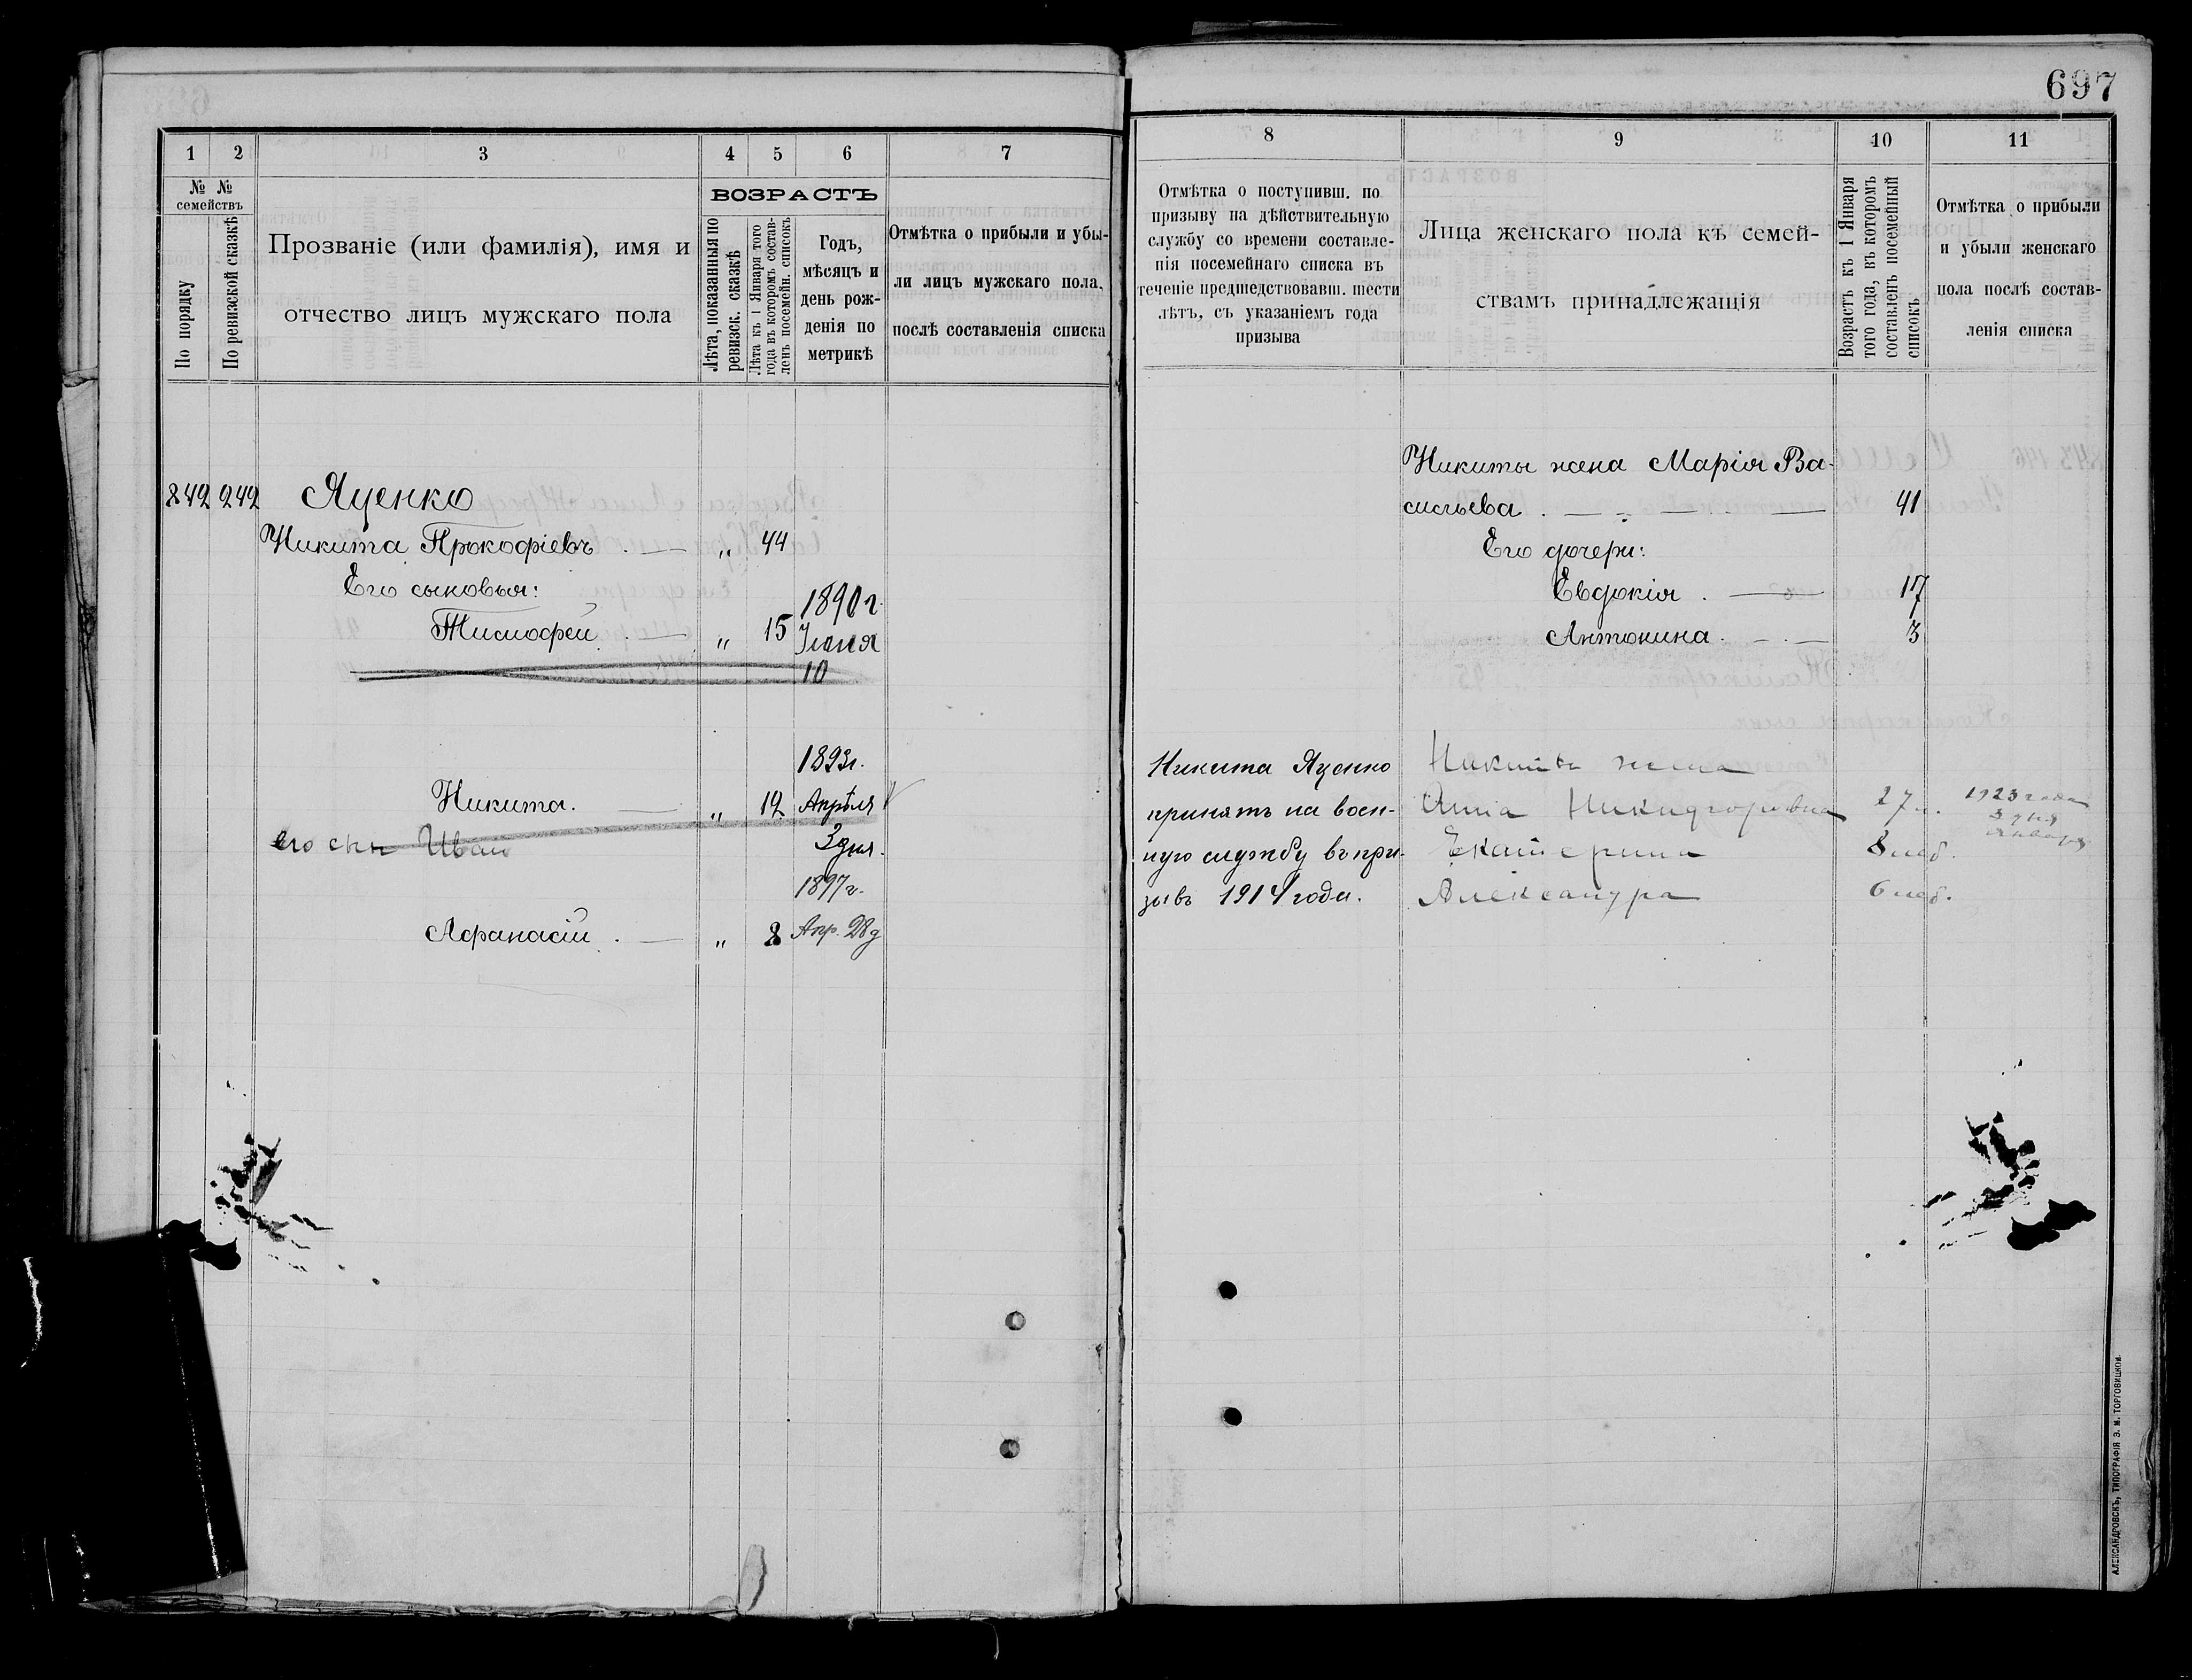 697
1
2
3
4
5
6
7
№ №
семействъ
По порядку
По ревизской сказкѣ
Прозваніе (или фамилія), имя и
отчество лицъ мужскаго пола
ВОЗРАСТЪ
Лѣта, показанныя по
ревизск. сказкѣ
Лѣта къ 1 Января того
года въ которомъ состав-
ленъ посемейн. списокъ
Годъ,
мѣсяцъ и
день рож-
денія по
метрикѣ
Отмѣтка о прибыли и убы-
ли лицъ мужскаго пола,
послѣ составленія списка
842 242 Яценко
Никита Прокофіевъ . — „ 44
Его сыновья:
1890 г.
Тимофей . — „ 15 Іюня
10
1893 г.
Никита. — „ 12 Апрѣля
его сын Иван 3 дня.
1897 г.
Афанасій . — „ 8 Апр. 28 д
8
9
10
11
Отмѣтка о поступивш. по
призыву на дѣйствительную
службу со времени составле-
нія посемейнаго списка въ
теченіе предшедствовавш. шести
лѣтъ, съ указаніемъ года
призыва
Лица женскаго пола къ семей-
ствамъ принадлежащія
Возрастъ къ 1 Января
того года, въ которомъ
составленъ посемейный
списокъ
Отмѣтка о прибыли
и убыли женскаго
пола послѣ состав-
ленія списка
Никиты жена Марія Ва-
сильева . — 41
Его дочери:
Евдокія . — 17
Антонина . — . — 3
Никита Яценко
принятъ на воен-
ную службу въ при-
зывъ 1914 года.
Никиты жена
Анна Никифоровна 27 л. 1923 года
3 дня
января
Екатерина 8 мѣс.
Александра 6 мѣс.
АЛЕКСАНДРОВСКЪ, ТИПОГРАФІЯ З. М. ТОРГОВИЦКОЙ.